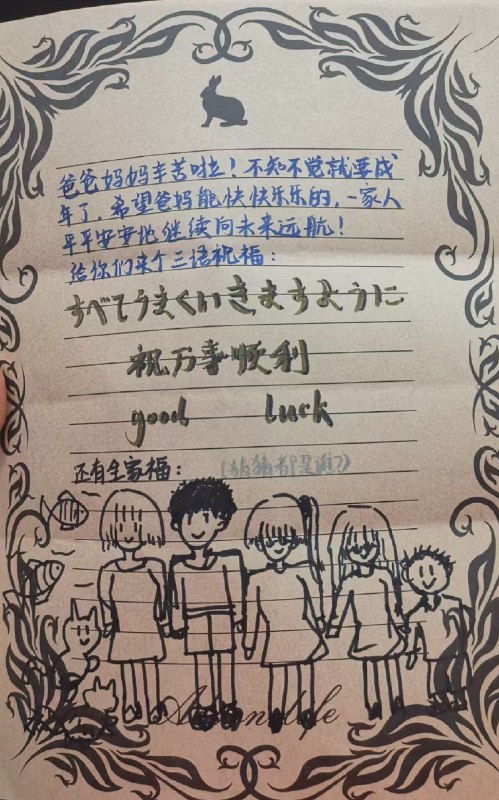 爸爸妈妈辛苦啦！不知不觉就要成
年了，希望爸妈能快快乐乐的，一家人
平平安安地继续向未来远航！
给你们来个三语祝福：
すべてうまくいきますように
祝万事顺利
good luck
还有全家福：（猜猜都是谁？）